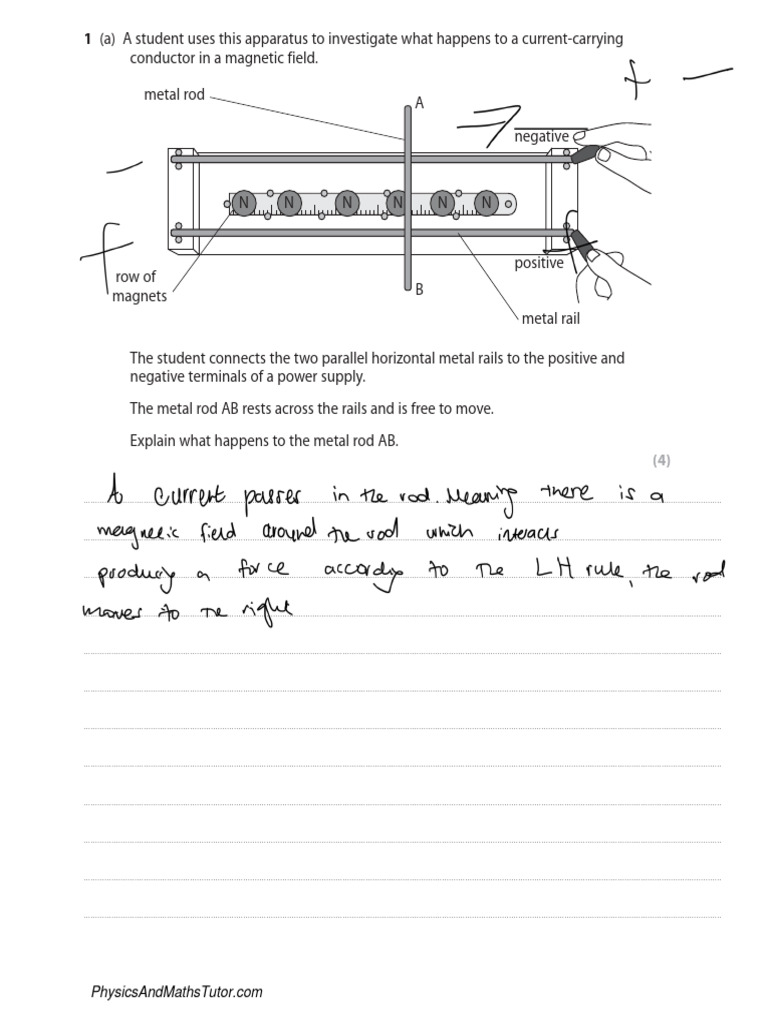 1 (a) A student uses this apparatus to investigate what happens to a current-carrying
conductor in a magnetic field.
+ −
metal rod
A
⇒
negative
−
N N N N N N
+
+
positive
row of
magnets
B
metal rail
The student connects the two parallel horizontal metal rails to the positive and
negative terminals of a power supply.
The metal rod AB rests across the rails and is free to move.
Explain what happens to the metal rod AB.
(4)
A current passes in the rod. Meaning there is a
magnetic field around the rod which interacts
producing a force according to the LH rule, the rod
moves to the right
PhysicsAndMathsTutor.com